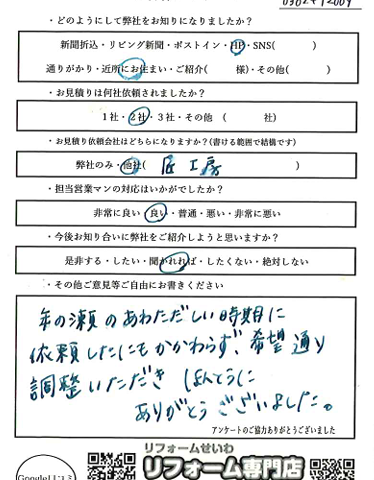 ・どのようにして弊社をお知りになりましたか？
新聞折込・リビング新聞・ポストイン・HP・SNS(　　　)
通りがかり・近所にお住まい・ご紹介(　　　様)・その他(　　　)
・お見積りは何社依頼されましたか？
1社・2社・3社・その他　(　　　社)
・お見積り依頼会社はどちらになりますか？(書ける範囲で結構です)
弊社のみ・他社(　匠工房　)
・担当営業マンの対応はいかがでしたか？
非常に良い・良い・普通・悪い・非常に悪い
・今後お知り合いに弊社をご紹介しようと思いますか？
是非する・したい・聞かれれば・したくない・絶対しない
・その他ご意見等ご自由にお書きください
年の瀬のあわただしい時期に
依頼したにもかかわらず、希望通り
調整いただき ほんとうに
ありがとうございました。
アンケートのご協力ありがとうございました
リフォームせいわ
リフォーム専門店